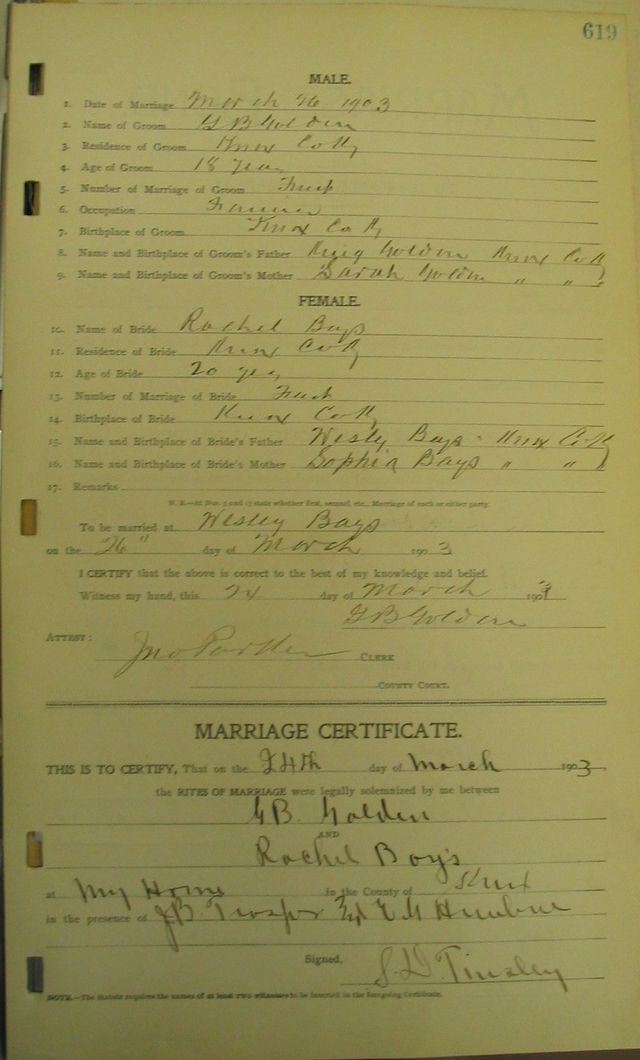 619
MALE.
1. Date of Marriage March 26 1903
2. Name of Groom G B Golden
3. Residence of Groom Knox Co Ky
4. Age of Groom 18 years
5. Number of Marriage of Groom First
6. Occupation Farmer
7. Birthplace of Groom Knox Co Ky
8. Name and Birthplace of Groom's Father Golden Knox Co Ky
9. Name and Birthplace of Groom's Mother Sarah Golden " " "
FEMALE.
10. Name of Bride Rachel Bays
11. Residence of Bride Knox Co Ky
12. Age of Bride 20 years
13. Number of Marriage of Bride First
14. Birthplace of Bride Knox Co Ky
15. Name and Birthplace of Bride's Father Wesly Bays - Knox Co Ky
16. Name and Birthplace of Bride's Mother Sophia Bays " " "
17. Remarks
N. B.—At Nos. 5 and 13 state whether first, second, etc., Marriage of each or either party.
To be married at Wesley Bays
on the 26" day of March 1903
I CERTIFY that the above is correct to the best of my knowledge and belief.
Witness my hand, this 24 day of March 1903
G B Golden
ATTEST:
Jno Parker CLERK
COUNTY COURT.
MARRIAGE CERTIFICATE.
THIS IS TO CERTIFY, That on the 24th day of March 1903
the RITES OF MARRIAGE were legally solemnized by me between
G.B. Golden
AND
Rachel Boys
at My Home in the County of Knox
in the presence of J.B. Trosper E G
Signed,
S.D. Tinsley
NOTE.—The Statute requires the names of at least two witnesses to be inserted in the foregoing Certificate.